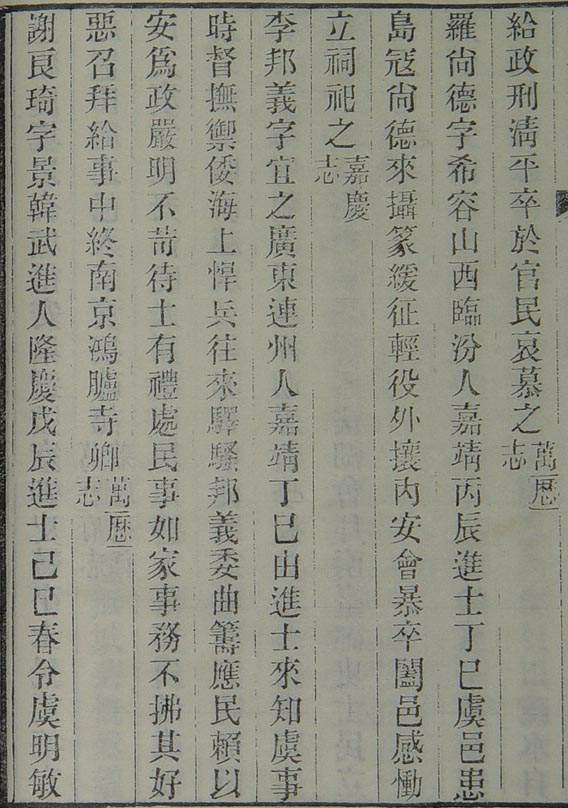 給政刑淸平卒於官民哀慕之萬厯志
羅尙德字希容山西臨汾人嘉靖丙辰進士丁巳虞邑患
島冦尙德來攝篆緩征輕役外攘內安會暴卒闔邑感慟
立祠祀之嘉慶志
李邦義字宜之廣東連州人嘉靖丁巳由進士來知虞事
時督撫禦倭海上悍兵往來驛騷邦義委曲籌應民賴以
安爲政嚴明不苛待士有禮處民事如家事務不拂其好
惡召拜給事中終南京鴻臚寺卿萬厯志
謝良琦字景韓武進人隆慶戊辰進士己巳春令虞明敏